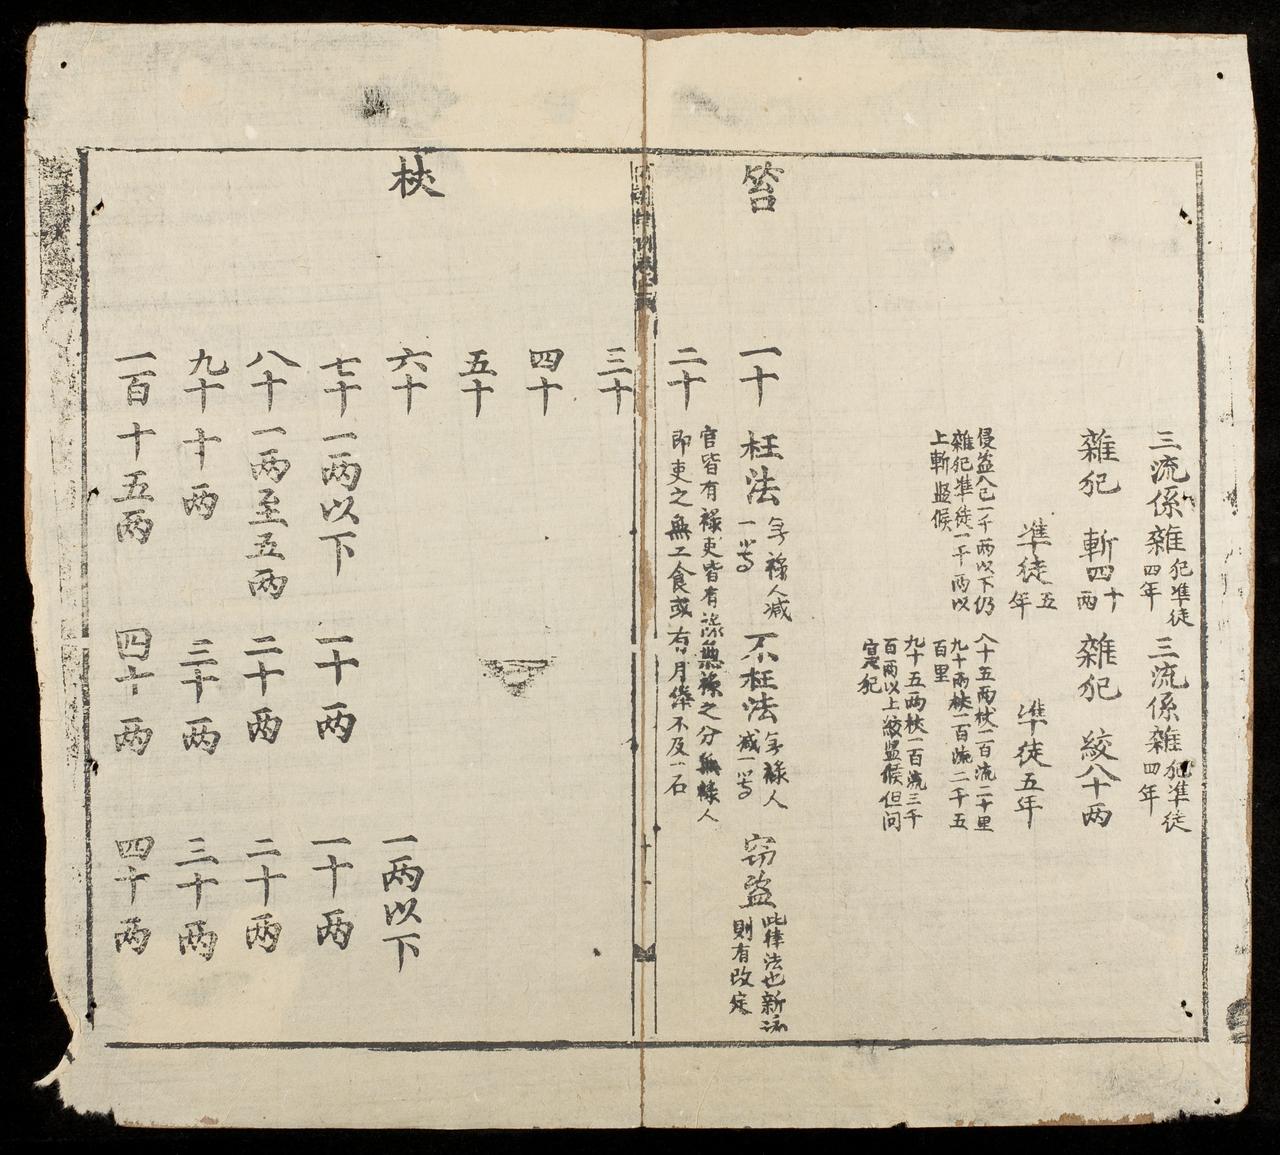 三流係雜犯準徒四年
三流係雜犯準徒四年
雜犯 斬四十兩
雜犯 絞八十兩
準徒五年
準徒五年
侵盜入己一千兩以下仍
雜犯準徒一千兩以
上斬監候
八十五兩杖一百流二千里
九十兩杖一百流二千五
百里
九十五兩杖一百流三千
百兩以上絞監候但問
實犯
笞
一十
枉法無祿人減一等
不枉法無祿人減一等
竊盜此律法也新
則有改定
官皆有祿吏皆有祿無祿之分無祿人
即吏之無工食或有月俸不及一石
二十
三十
四十
五十
杖
六十
一两以下
七十
一两以下
一十两
一十两
八十
一两至五两
二十两
二十两
九十
十两
三十两
三十两
一百
十五两
四十两
四十两